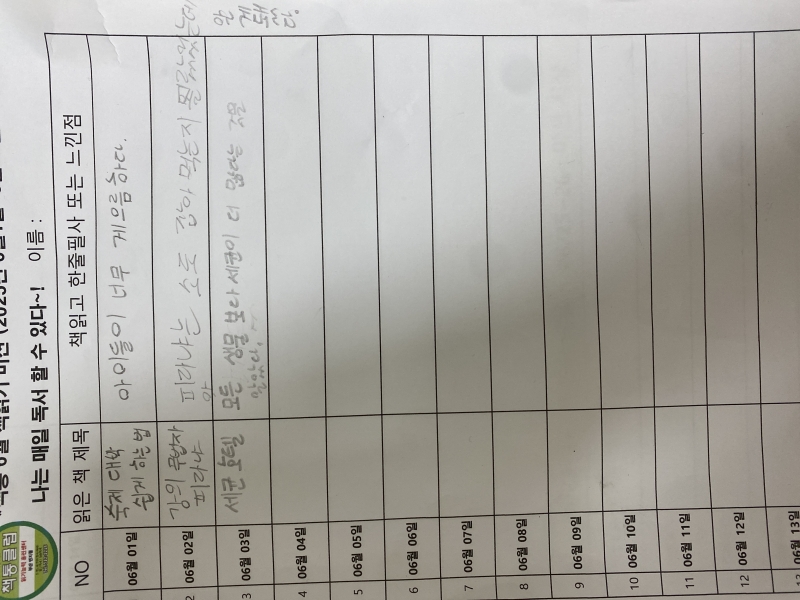 책통클럽
6월 책읽기 미션 (2025년 6월
나는 매일 독서 할 수 있다~! 이름 :
NO 읽은 책 제목 책읽고 한줄필사 또는 느낀점
06월 01일 숙제 대학 쉽게 하는 법 아이들이 너무 게으름하다.
2 06월 02일 강의 무법자 피라냐 피라냐는 소도 잡아 먹는지
3 06월 03일 세균 호텔 모든 생물 보다 세균이 더 많다는 것을 알았다.
4 06월 04일
5 06월 05일
6 06월 06일
7 06월 07일
8 06월 08일
9 06월 09일
10 06월 10일
11 06월 11일
12 06월 12일
13 06월 13일